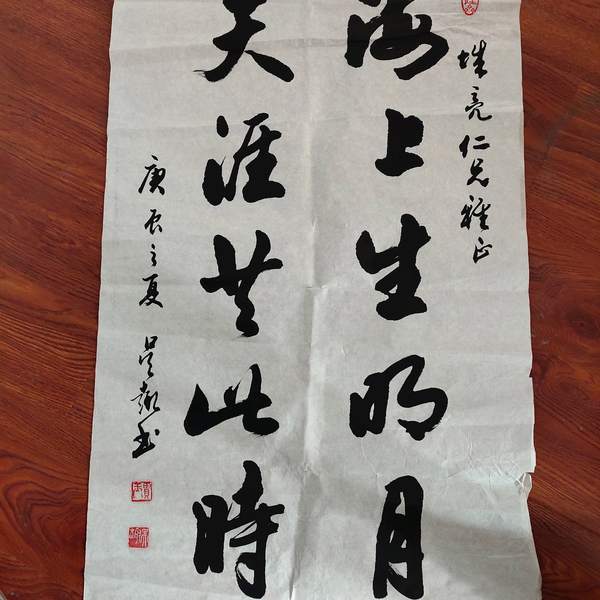 亮仁兄雅正
海上生明月
天涯共此時
庚辰之夏